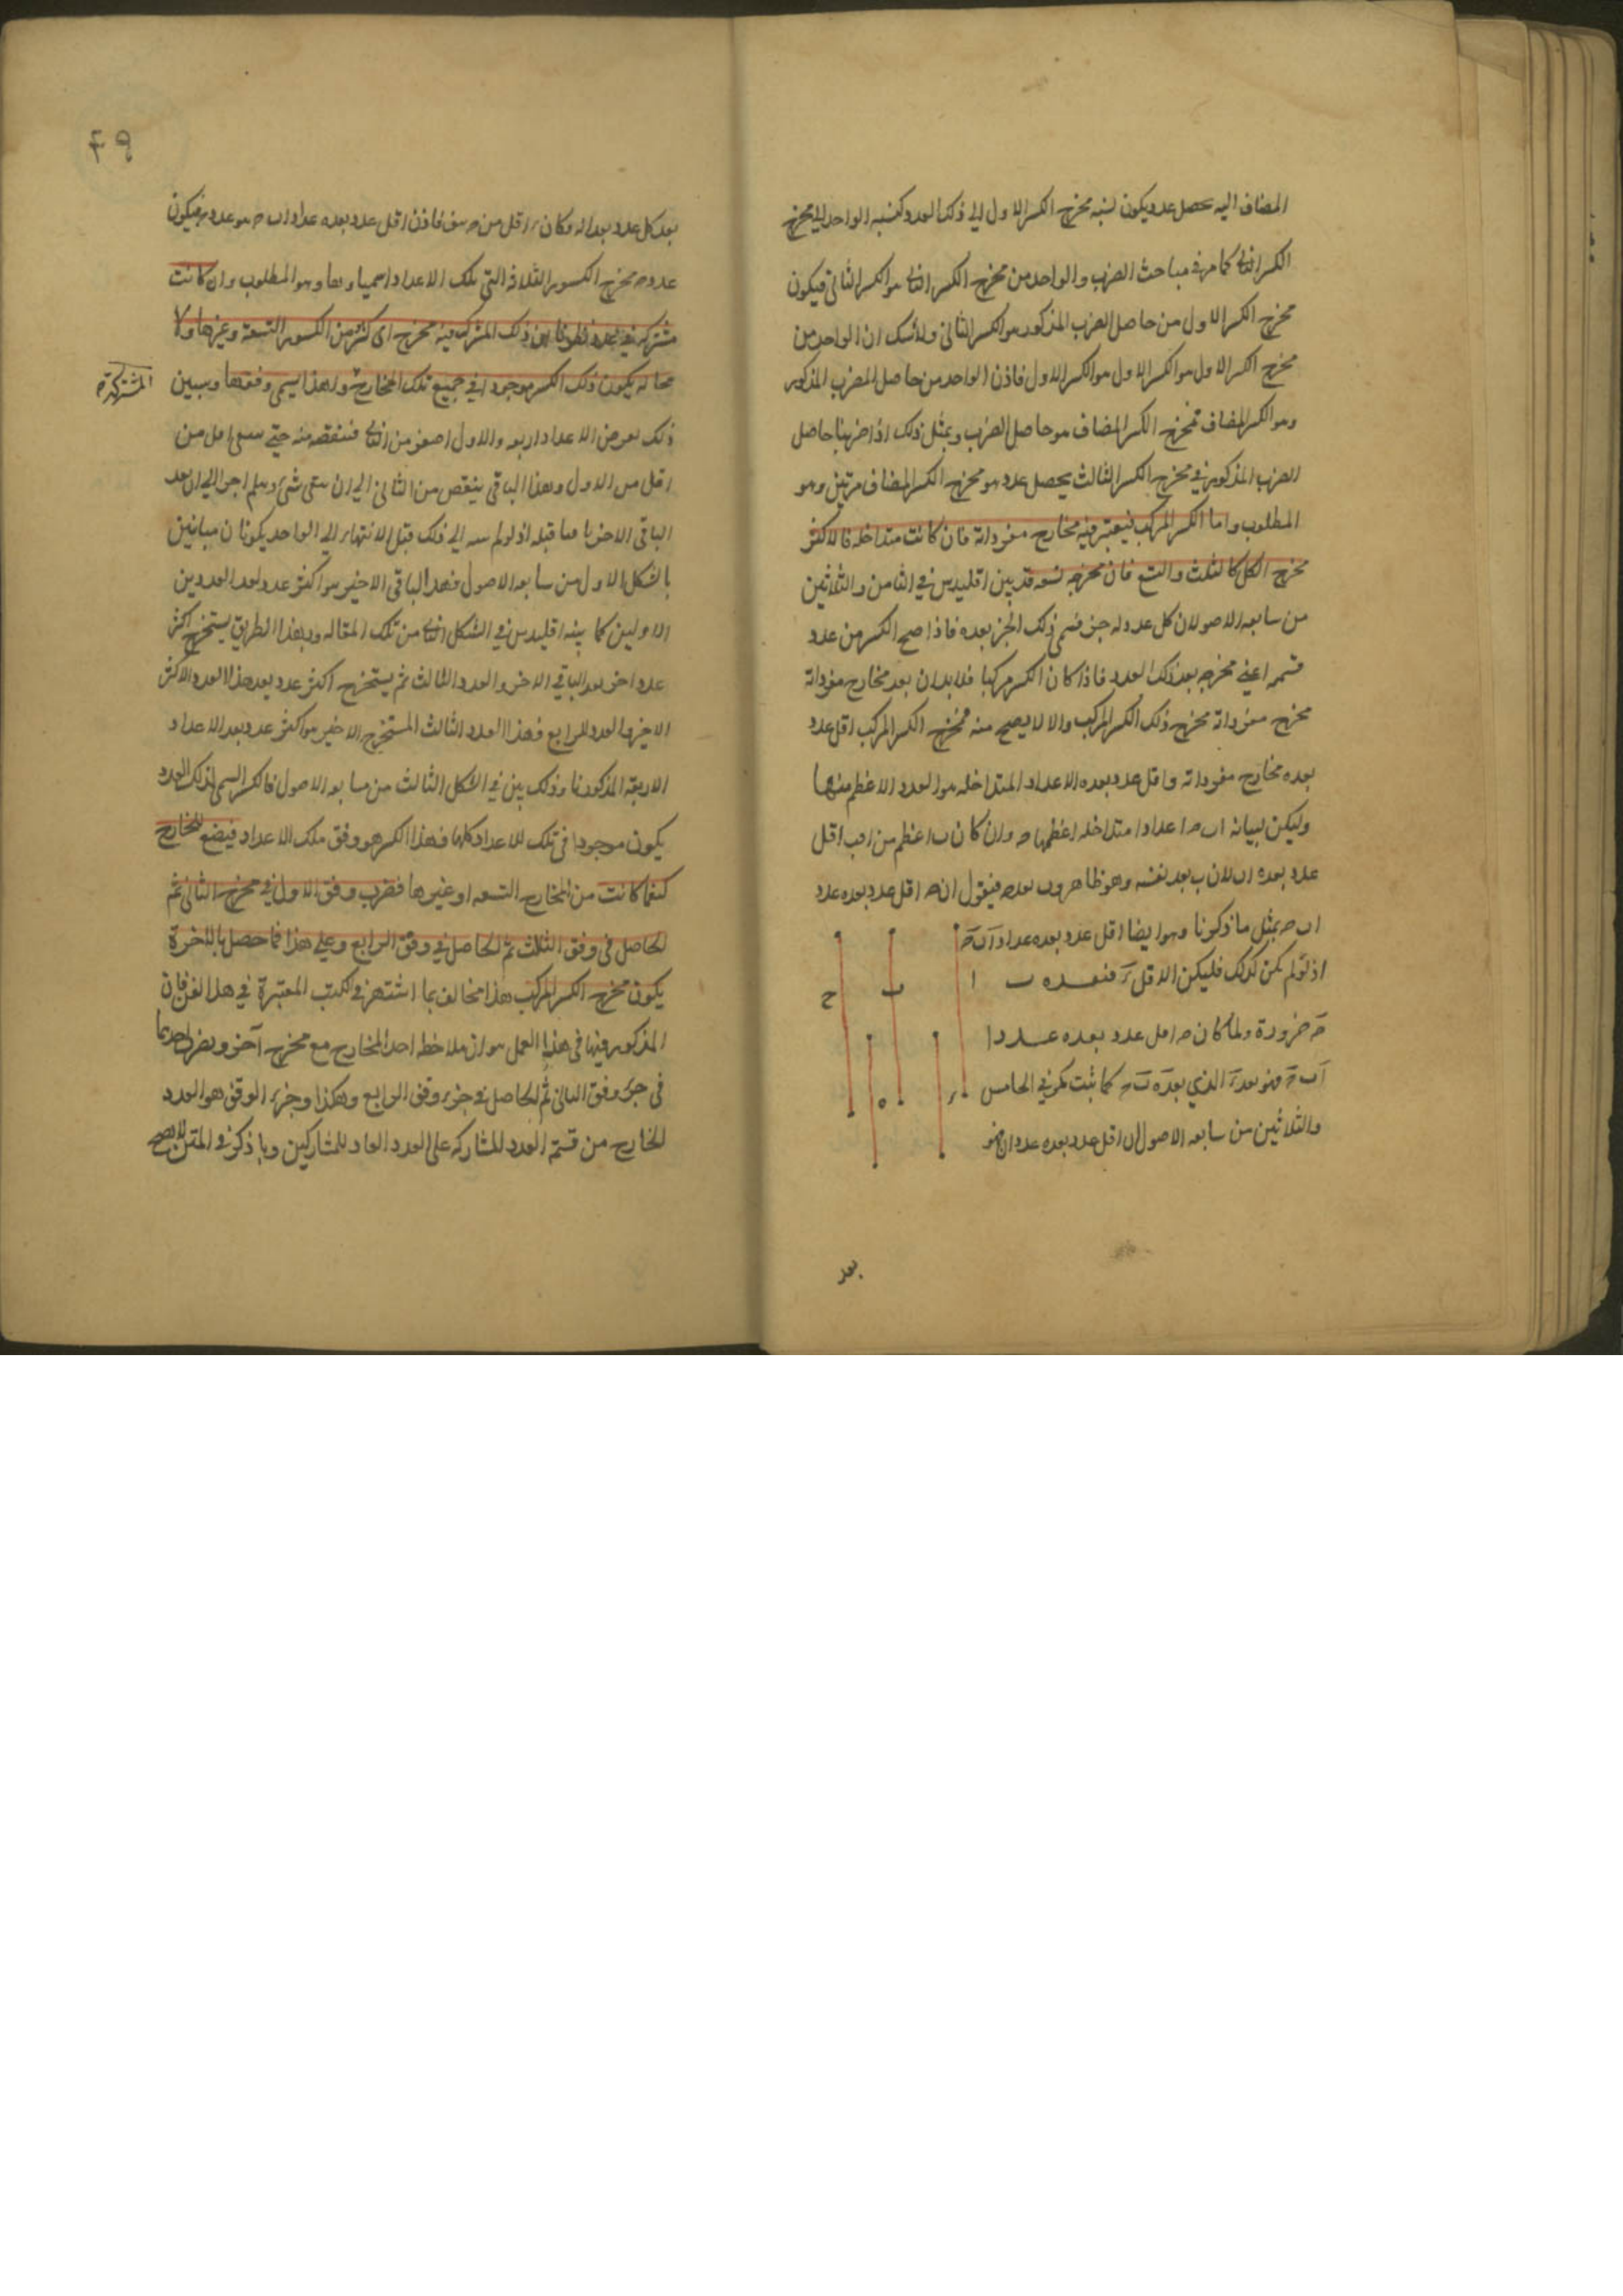 المضاف اليه يحصل عدد يكون نسبة مخرج الكسر الاول الى ذلك العدد كنسبة الواحد الى مخرج
الكسر الثانى كما مر فى مباحث الضرب والواحد من مخرج الكسر الثانى هو الكسر الثانى فيكون
مخرج الكسر الاول من حاصل الضرب المذكور هو الكسر الثانى ولا شك ان الواحد من
مخرج الكسر الاول هو الكسر الاول هو الكسر الاول فاذن الواحد من حاصل الضرب المذكور
وهو الكسر المضاف فمخرج الكسر المضاف هو حاصل الضرب وبمثل ذلك اذا ضربنا حاصل
الضرب المذكور فى مخرج الكسر الثالث يحصل عدد هو مخرج الكسر المضاف مرتين وهو
المطلوب واما الكسر المركب فيعتبر فيه مخارج مفرداته فان كانت متداخلة فالاكثر
مخرج الكل كالثلث والتسع فان مخرجه تسعة قد بين اقليدس فى الثامن والثلاثين
من سابعة الاصول ان كل عدد له جزء فسمى ذلك الجزء يعده فاذا صح الكسر من عدد
فسميه اعنى مخرجه يعد ذلك العدد فاذا كان الكسر مركبا فلا بد ان يعد مخارج مفرداته
مخرج مفرداته مخرج ذلك الكسر المركب والا لا يصح منه فمخرج الكسر المركب اقل عدد
يعده مخارج مفرداته واقل عدد يعده الاعداد المتداخلة هو العدد الاعظم منها
وليكن لبيانه ا ب ح اعدادا متداخلة اعظمها ح وان كان ب اعظم من ا فب اقل
عدد يعده ا ب لان ب يعد نفسه وهو ظاهر و ب يعد ح فنقول ان ح اقل عدد يعده عدد
ا ب ح بمثل ما ذكرنا وهو ايضا اقل عدد يعده عداد ا ب ح
اذ لو لم يكن كذلك فليكن الاقل ر فيعده ب ا
ح ضرورة ولما كان ح اقل عدد يعده عددا
ا ب ح فهو يعد ر الذى يعده ب ح كما ثبت فى الخامس
والثلاثين من سابعة الاصول ان اقل عدد يعده عددان فهو
ا ب ح
ر ه
يعد
٤٩
يعد كل عدد يعدانه وكان ر اقل من ح هف فاذن اقل عدد يعده عداد ا ب ح هو عدد ح فيكون
عدد ح مخرج الكسور الثلاثة التى تلك الاعداد اسمياؤها وهو المطلوب وان كانت
مشتركة فى عدد ذلك المشترك فيه مخرج اى كسر من الكسور التسعة وغيرها ولا
محالة يكون ذلك الكسر موجودا فى جميع تلك المخارج ولهذا يسمى وفقها وسبين
المشتركة
ذلك نعرض الاعداد اربعة والاول اصغر من الثانى فننقصه منه حتى يبقى اقل من
اقل من الاول وهذا الباقى ينقص من الثانى الى ان يبقى شىء وهلم جرا الى ان يعد
الباقى الاخير ما قبله اذ لو لم ينته الى ذلك قبل الانتهاء الى الواحد يكونان مباينين
بالشكل الاول من سابعة الاصول فهذا الباقى الاخير هو اكثر عدد يعد العددين
الاولين كما بينه اقليدس فى الشكل الثانى من تلك المقالة وبهذا الطريق يستخرج اكثر
عدد اخر يعد الباقى الاخير والعدد الثالث ثم يستخرج اكثر عدد يعد هذا العدد الاكثر
الاخير والعدد الرابع فهذا العدد الثالث المستخرج الاخير هو اكثر عدد يعد الاعداد
الاربعة المذكورة وذلك بين فى الشكل الثالث من سابعة الاصول فالكسر السمى لذلك العدد
يكون موجودا فى تلك الاعداد كلها فهذا الكسر هو وفق تلك الاعداد فيضع للمخارج
كيفما كانت من المخارج التسعة او غيرها فضرب وفق الاول فى مخرج الثانى ثم
الحاصل فى وفق الثلث ثم الحاصل فى وفق الرابع وعلى هذا فما حصل بالاخرة
يكون مخرج الكسر المركب هذا مخالف بما اشتهر فى الكتب المعتبرة فى هذا الفن فان
المذكور فيها فى هذا العمل هو ان يلاخط احد المخارج مع مخرج آخر ويضرب احدهما
فى جزء وفق الثانى ثم الحاصل فى جزء وفق الرابع وهكذا وجزء الوفق هو العدد
الخارج من قسمة العدد المشارك على العدد العاد للمشاركين وما ذكر فى المتن لا يصح